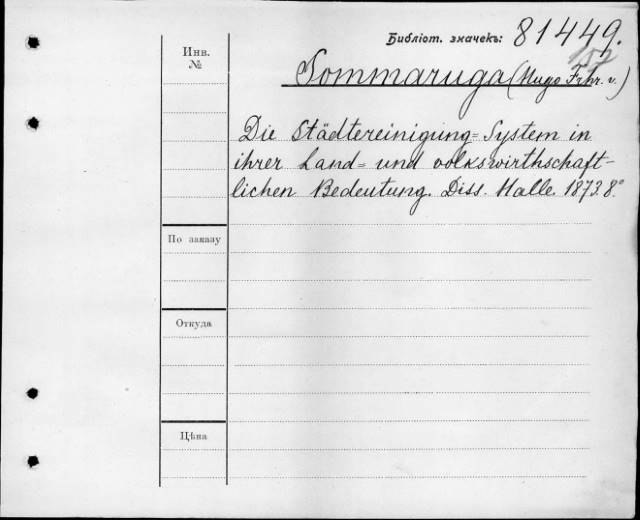 Библіот. значекъ: 81449.
157
Инв.
№
Sommaruga (Hugo Frhr. v.)
Die Städtereinigung=System in
ihrer Land= und volkswirthschaft-
lichen Bedeutung. Diss. Halle. 1873. 8°
По заказу
Откуда
Цѣна